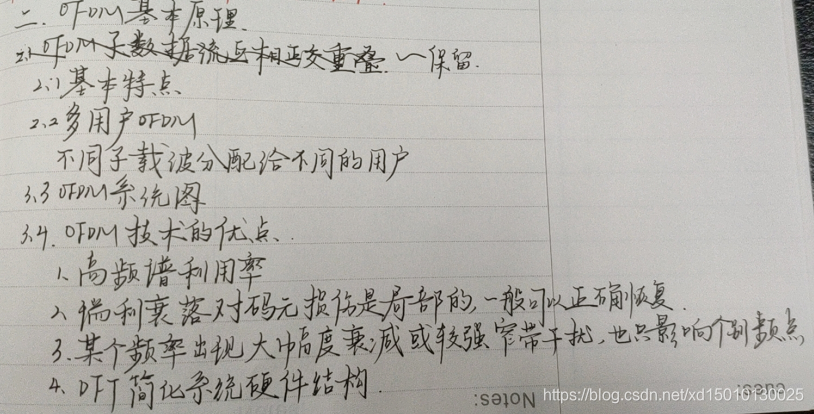 二. OFDM基本原理.
2.1 OFDM子数据流互相正交重叠. 保留.
2.1 基本特点
2.2 多用户OFDM
不同子载波分配给不同的用户
3.3 OFDM系统图
3.4. OFDM技术的优点.
1. 高频谱利用率
2. 瑞利衰落对码元损伤是局部的, 一般可以正确恢复.
3. 某个频率出现大幅度衰减或较强窄带干扰, 也只影响个别频点
4. DFT简化系统硬件结构.
Notes:
https://blog.csdn.net/xd15010130025